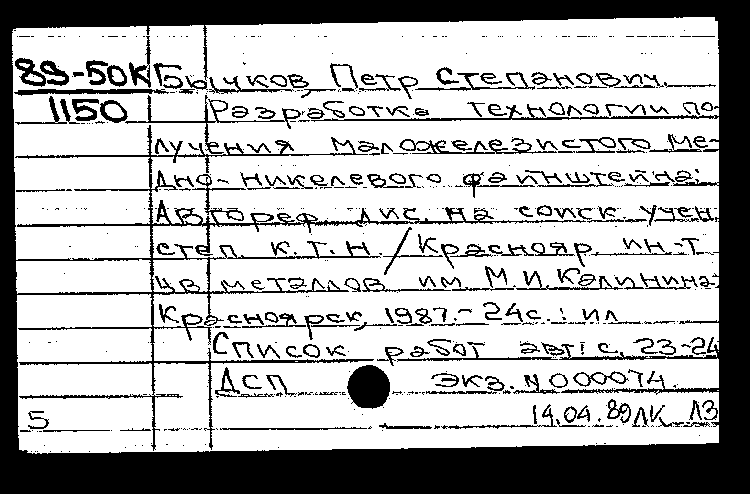 89-50К Бычков, Петр Степанович.
1150 Разработка технологии по-
лучения маложелезистого ме-
дно-никелевого файнштейна:
Автореф. дис. на соиск. учен.
степ. к.т.н. / Краснояр. ин-т
цв. металлов им. М.И. Калинина.
Красноярск, 1987.- 24с.: ил
Список работ авт.: с. 23-24
ДСП ЭКЗ. N000074.
5 14.04.89 ЛК ЛЗ